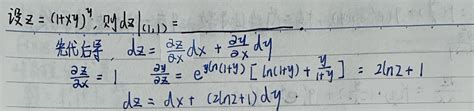 设z=(1+xy)^y,则dz|(1,1)=
先代后导 dz = ∂z/∂x dx + ∂z/∂y dy
∂z/∂x = 1 ∂z/∂y = e^{yln(1+y)} [ln(1+y) + y/(1+y)] = 2ln2+1
dz = dx + (2ln2+1)dy